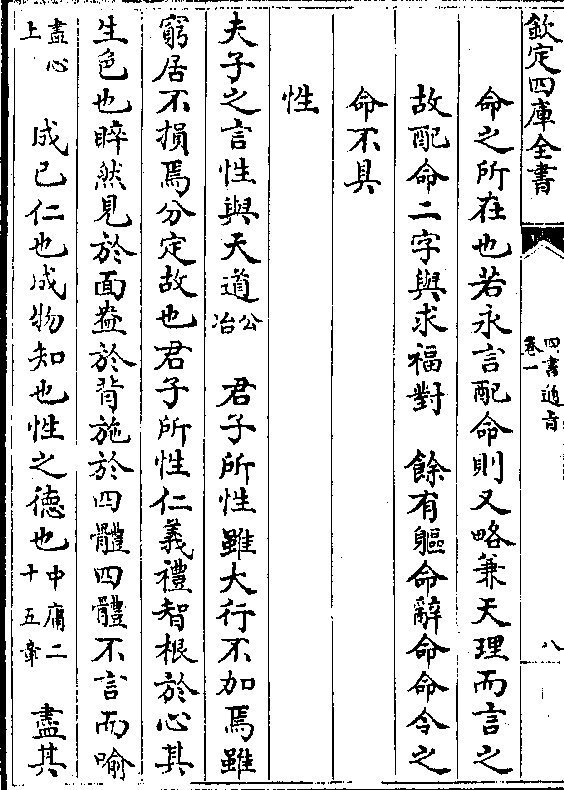 欽定四庫全書
四書通旨
卷一
八
命之所在也若永言配命則又略兼天理而言之
故配命二字與求福對　餘有軀命辭命命令之
命不具
性
夫子之言性與天道公冶　君子所性雖大行不加焉雖
窮居不損焉分定故也君子所性仁義禮智根於心其
生色也睟然見於面盎於背施於四體四體不言而喻
盡心上　成己仁也成物知也性之德也中庸二十五章　盡其